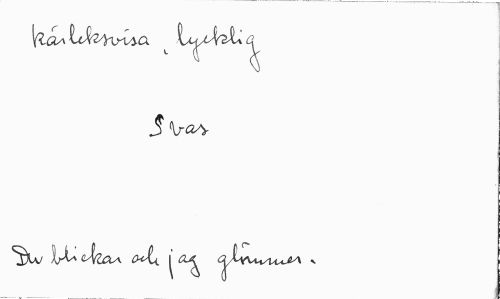 kärleksvisa, lycklig
Svar
Du blickar och jag glömmer.